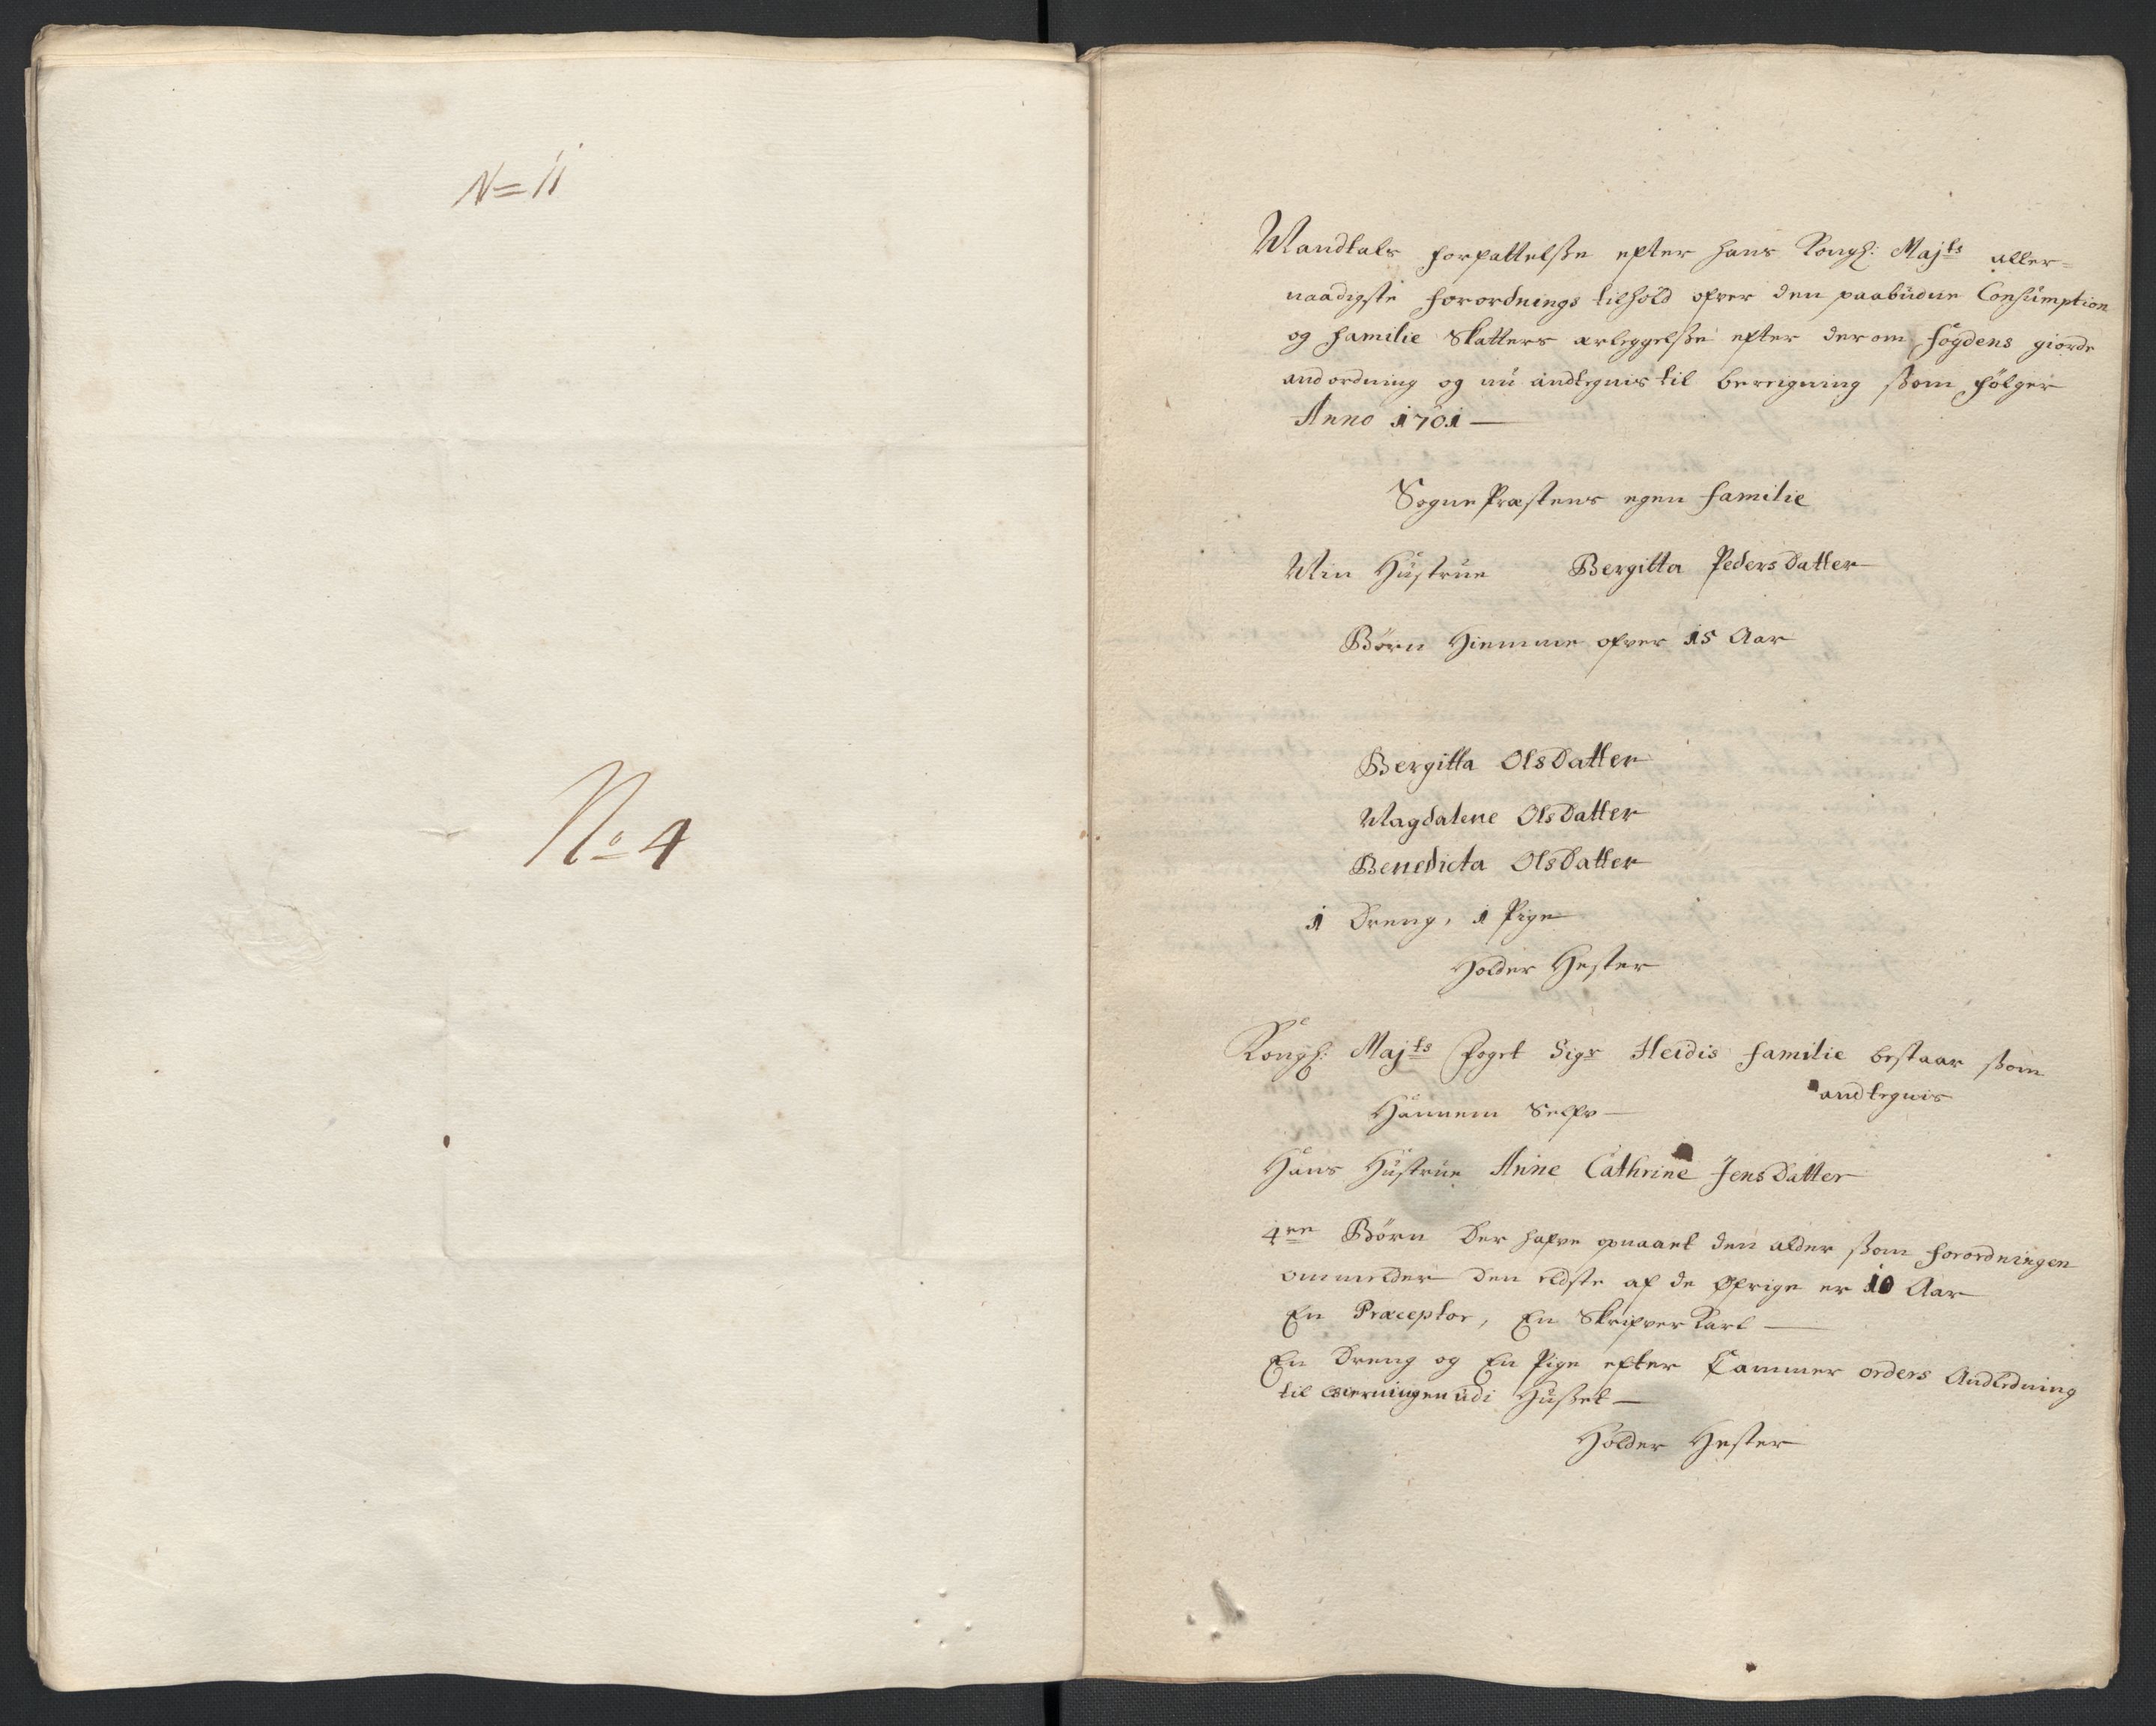 N= 11
No 4
Mandtals forfattelße efter hans Kongl: Majts aller=
naadigste forordnings tilhold ofver den paabudne Consumption
og familie Skatters erleggelße efter derom fogdens giorde
andordning og nu andtegnis til beregning ßom fölger
Anno 1701 —
Sogne Præstens egen familie
Min Hustrue Bergitta Peders Datter
Börn Hiemme ofver 15 Aar
Bergitta Ols Datter
Magdalene Ols Datter
Benedicta Ols Datter
1 Dreng, 1 Pige
Holder Hester
Kongl: Majts Foget Sigr Heidis familie bestaar ßom
andtegnis
Hannem Selfv —
Hans Hustrue Anne Cathrine Jens Datter
4re Börn Der hafve opnaaet den alder ßom forordningen
ommelder den eldste af de öfrige er 10 Aar
En Præceptor, En Skrifver Karl —
En Dreng og En Pige efter Cammer orders Andledning
til udi Hußet —
Holder Hester